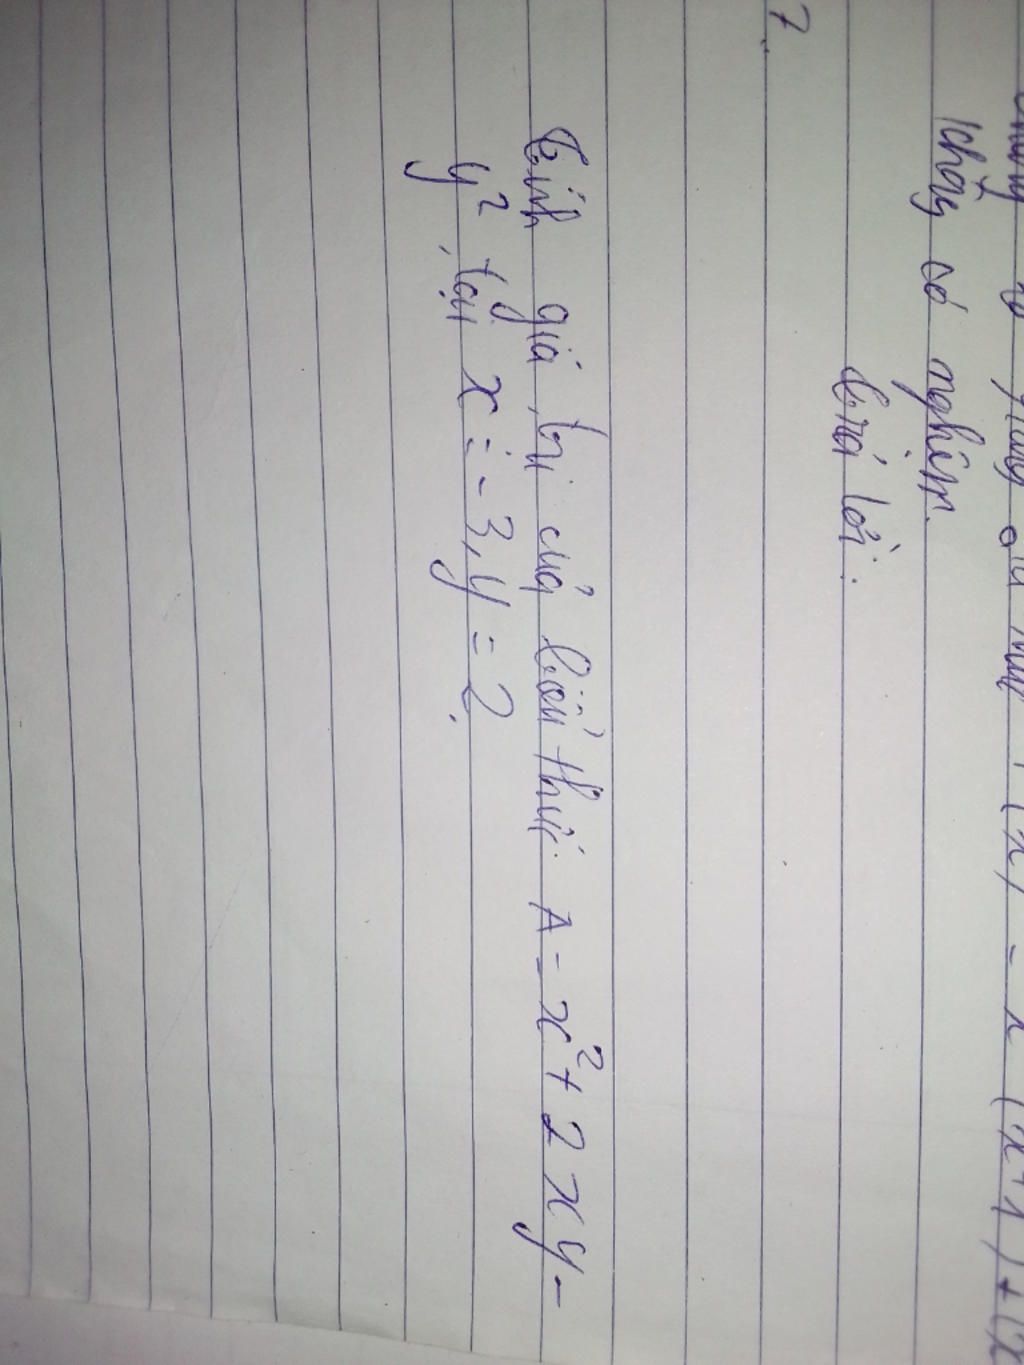 khôg có nghiệm.
trả lời.
7.
tính giá trị của biểu thức A = x² + 2xy -
y² tại x = -3, y = 2.